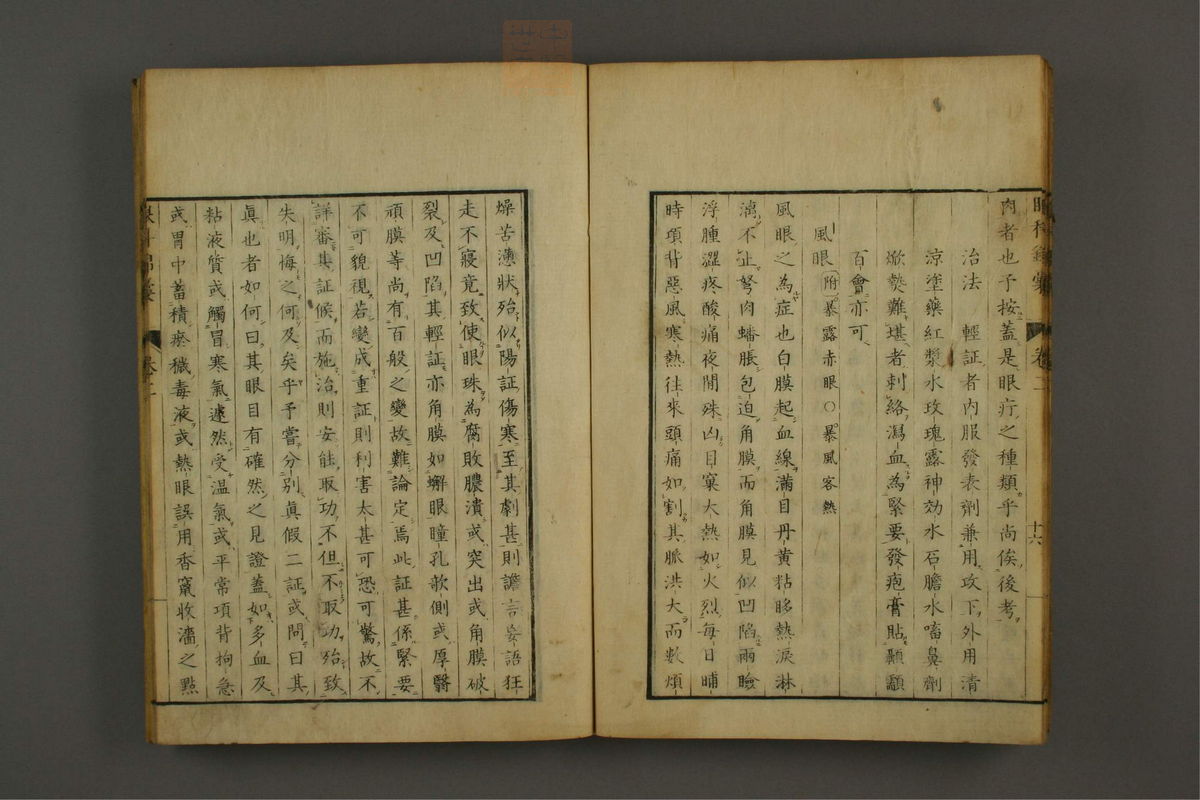 眼科錦囊 卷二 十六
肉者也予按蓋是眼疔之種類乎尚俟後考
治法 輕証者内服發表劑兼用攻下外用清
涼塗藥紅漿水玫瑰露神効水石膽水嗜鼻劑
焮熱難堪者刺絡瀉血為緊要發疱膏貼顳顬
百會亦可
風眼 附暴露赤眼○暴風客熱
風眼之為症也白膜起血線滿目丹黄粘眵熱淚淋
漓不止弩肉蟠脹包迫角膜而角膜見似凹陷兩瞼
浮腫澀疼酸痛夜間殊凶目窠大熱如火烈每日晡
時項背惡風寒熱往來頭痛如割其脈洪大而數煩
燥苦懣狀殆似陽証傷寒至其劇甚則譫言妄語狂
走不寢竟致使眼珠為腐敗膿潰或突出或角膜破
裂及凹陷其輕証亦角膜如蠏眼瞳孔欹側或厚瞖
頑膜等尚有百般之變故難論定焉此証甚係緊要
不可貌視若變成重証則利害太甚可恐可驚故不
詳審其証候而施治則安能取功不但不取功殆致
失明悔之何及矣乎予嘗分別眞假二証或問曰其
眞也者如何曰其眼目有確然之見證蓋如多血及
粘液質或觸冒寒氣遽然受温氣或平常項背拘急
或胃中蓄積瘀穢毒液或熱眼誤用香竄收濇之點